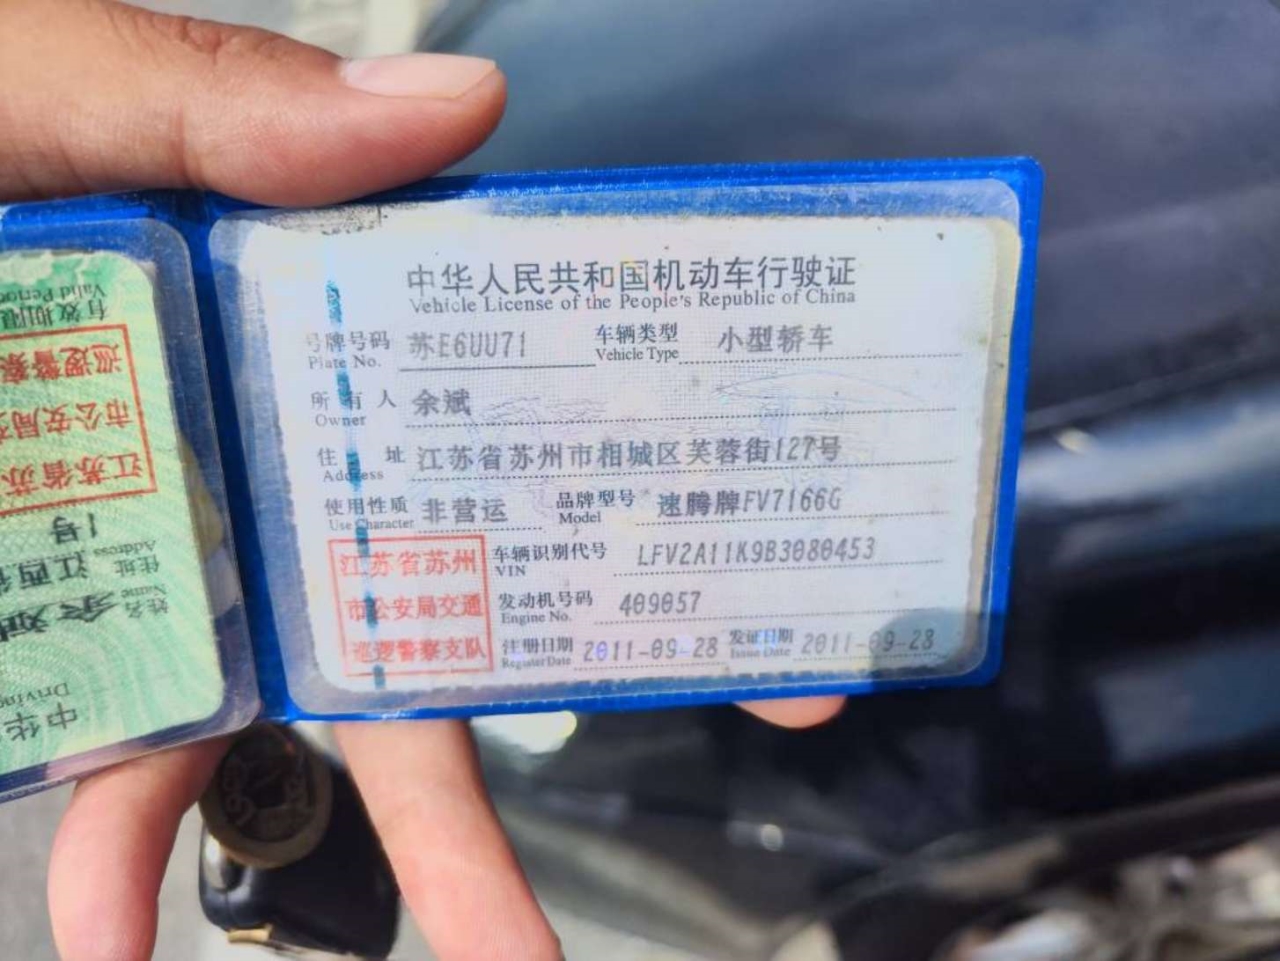 中华人民共和国机动车行驶证
Vehicle License of the People's Republic of China
号牌号码 苏E6UU71 车辆类型 小型轿车
Plate No. Vehicle Type
所有人 余斌
Owner
住址 江苏省苏州市相城区芙蓉街127号
Address
使用性质 非营运 品牌型号 速腾牌FV7166G
Use Character Model
江苏省苏州
市公安局交通
巡逻警察支队
车辆识别代号 LFV2A11K9B3080453
VIN
发动机号码 409057
Engine No.
注册日期 2011-09-28 发证日期 2011-09-28
Register Date Issue Date
中华
Driving
姓名 余斌
Name
住址 江西省
Address
1号
江苏省苏
市公安局交
巡逻警察
有效期限
Valid Period